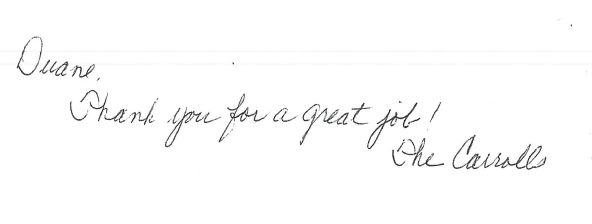 Duane,
Thank you for a great job!
The Carrolls